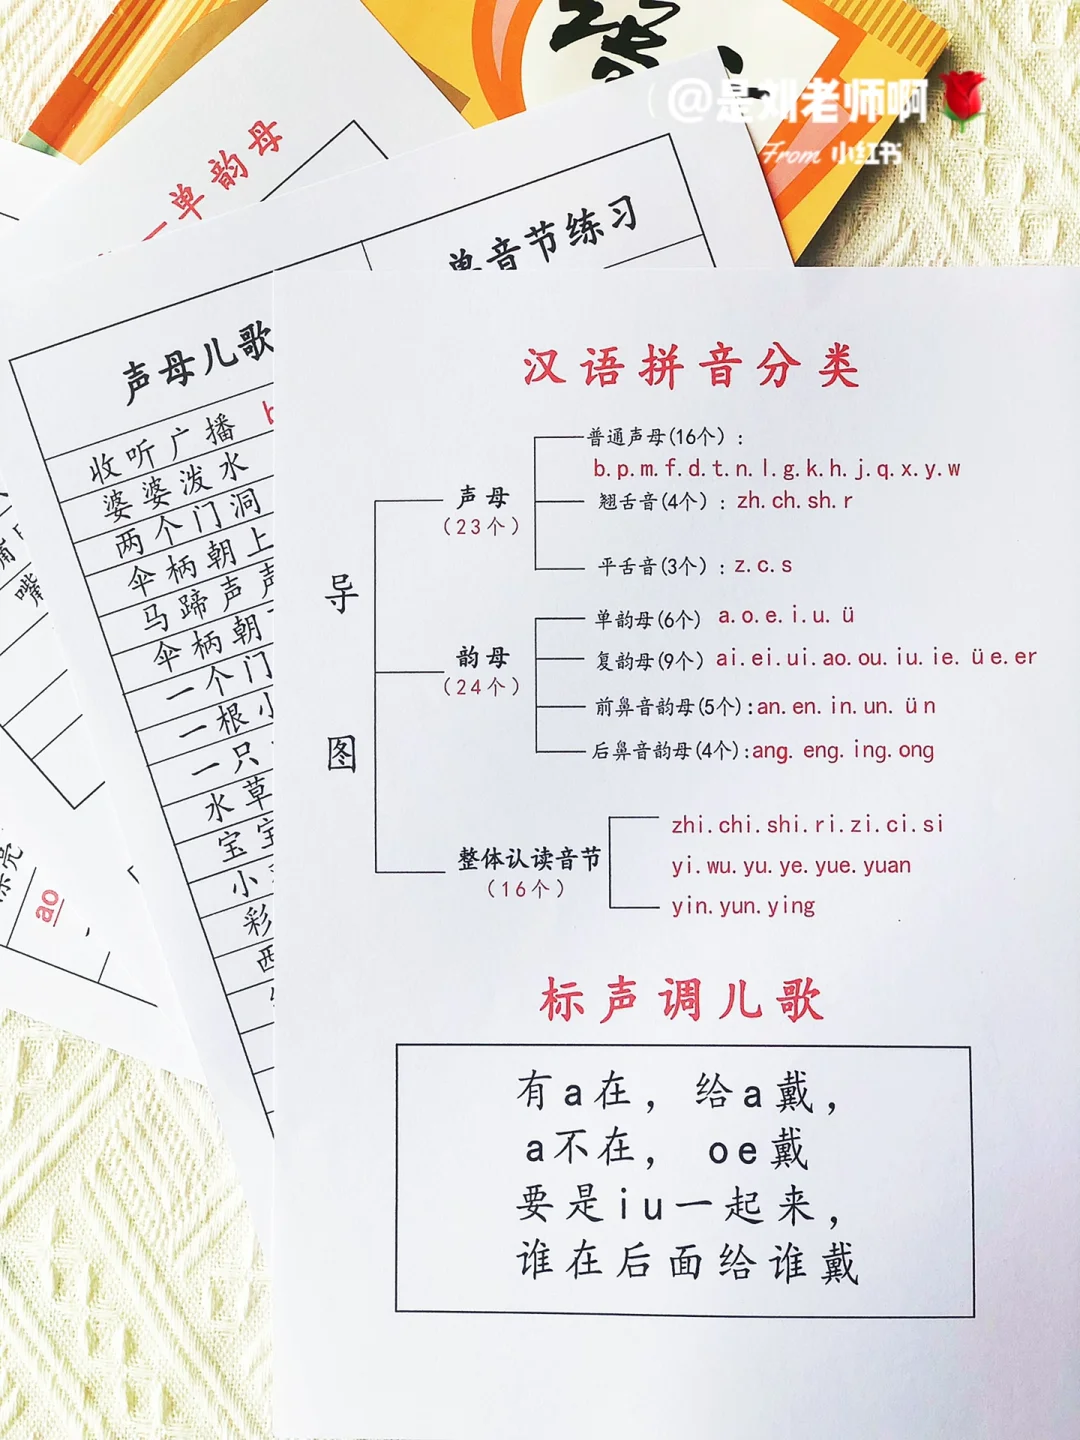 @是刘老师啊
From 小红书
单韵母
单音节练习
声母儿歌
收听广播
婆婆泼水
两个门洞
伞柄朝上
马蹄声声
伞柄朝
一个门
一根小
一只
水草
宝宝
小
彩
西
ao
汉语拼音分类
导图
声母
(23个)
普通声母(16个):
b.p.m.f.d.t.n.l.g.k.h.j.q.x.y.w
翘舌音(4个): zh.ch.sh.r
平舌音(3个): z.c.s
韵母
(24个)
单韵母(6个) a.o.e.i.u.ü
复韵母(9个) ai.ei.ui.ao.ou.iu.ie.üe.er
前鼻音韵母(5个):an.en.in.un.ün
后鼻音韵母(4个):ang.eng.ing.ong
整体认读音节
(16个)
zhi.chi.shi.ri.zi.ci.si
yi.wu.yu.ye.yue.yuan
yin.yun.ying
标声调儿歌
有a在，给a戴，
a不在，oe戴
要是iu一起来，
谁在后面给谁戴